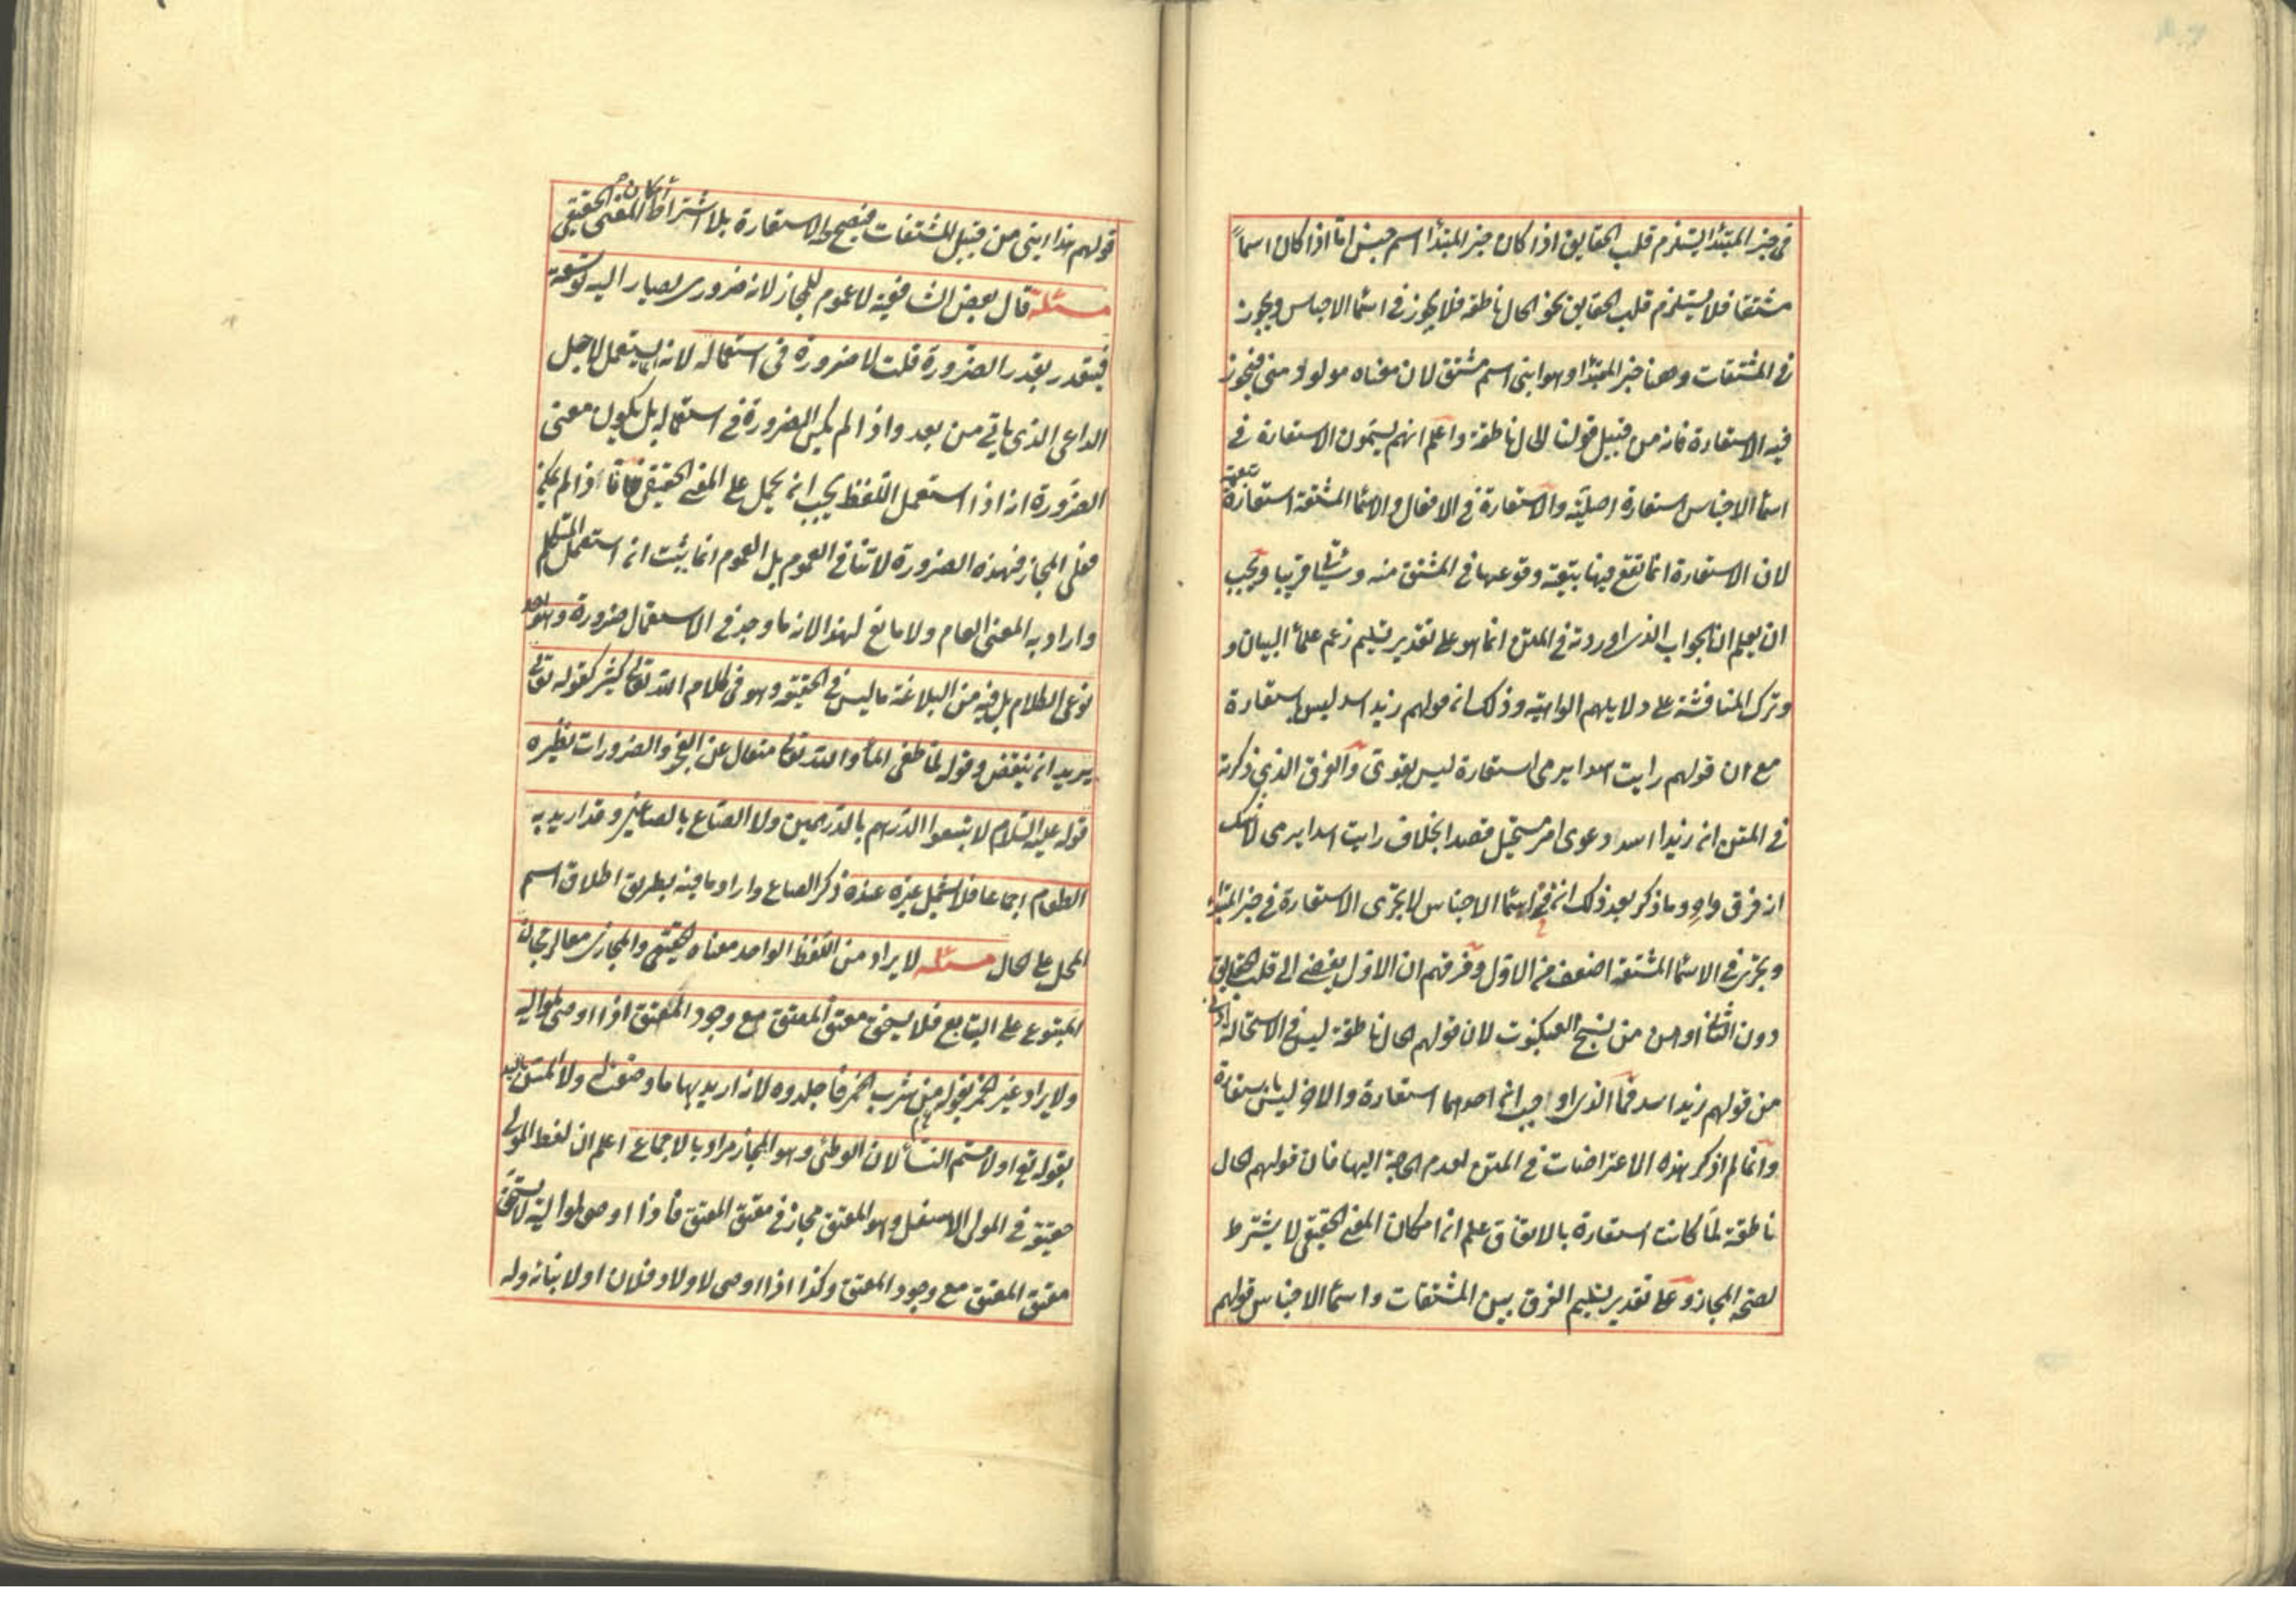 فى خبر المبتدأ يستلزم قلب الحقايق اذا كان خبر المبتدأ اسم جنس اما اذا كان اسماً
مشتقا فلا يستلزم قلب الحقايق نحو الحال ناطقة فلا يجوز فى اسماء الاجناس ويجوز
فى المشتقات وههنا خبر المبتدأ وهو ابنى اسم مشتق لان معناه مولود منى فيجوز
فيه الاستعارة فانه من قبيل قولنا الحال ناطقة واعلم انهم يسمون الاستعارة فى
اسماء الاجناس استعارة اصلية والاستعارة فى الافعال والاسماء المشتقة استعارة تبعية
لان الاستعارة انما تقع فيها بتبعية وقوعها فى المشتق منه وسيأتى قريبا ويجب
ان يعلم ان الجواب الذى اوردته فى المتن انما هو على تقدير تسليم زعم علماء البيان و
وترك المناقشة على دلايلهم الواهية وذلك ان قولهم زيد اسد ليس باستعارة
مع ان قولهم رايت اسدا يرمى استعارة ليس بقوى والفرق الذى ذكرته
فى المتن ان زيدا اسد دعوى امر مستحيل قصدا بخلاف رايت اسدا يرمى لا شك
انه فرق واهٍ وما ذكر بعد ذلك ان فى اسماء الاجناس لا يجرى الاستعارة فى خبر المبتدأ
ويجرى فى الاسماء المشتقة اضعف من الاول وفرقهم ان الاول يفضى الى قلب الحقايق
دون الثانى اوهن من نسج العنكبوت لان قولهم الحال ناطقة ليس فى الاستحالة ادنى
من قولهم زيد اسد فما الذى اوجب ان احدهما استعارة والاخر ليس باستعارة
وانما لم اذكر هذه الاعتراضات فى المتن لعدم الحاجة اليها فان قولهم الحال
ناطقة لما كانت استعارة بالاتفاق علم ان امكان المعنى الحقيقى لا يشترط
لصحة المجاز وعلى تقدير تسليم الفرق بين المشتقات واسماء الاجناس قولهم
قولهم هذا ابنى من قبيل المشتقات فيصح الاستعارة بلا اشتراط امكان المعنى الحقيقى
مسئلة قال بعض الشافعية لا عموم للمجاز لانه ضرورى يصار اليه توسعة
فيتقدر بقدر الضرورة قلت لا ضرورة فى استعماله لانه انما يستعمل لاجل
الداعى الذى ياتى من بعد واذا لم يكن الضرورة فى استعماله بل يكون معنى
الضرورة انه اذا استعمل اللفظ يجب ان يحمل على المعنى الحقيقى فاذا لم يمكن
فعلى المجاز فهذه الضرورة لا تنافى العموم بل العموم انما يثبت ان استعمل المتكلم
واراد به المعنى العام ولا مانع لهذا لانه ما وجد فى الاستعمال ضرورة وهو احد
نوعى الكلام بل فيه من البلاغة ما ليس فى الحقيقة وهو فى كلام الله تعالى كثير كقوله تعالى
يريد ان ينقض وقوله لما طغى الماء والله تعالى متعال عن العجز والضرورات نظيره
قوله عليه السلام لا تبيعوا الدرهم بالدرهمين ولا الصاع بالصاعين وقد اريد به
الطعام اجماعا فلا يشمل غيره عنده ذكر الصاع واراد ما فيه بطريق اطلاق اسم
المحل على الحال مسئلة لا يراد من اللفظ الواحد معناه الحقيقى والمجازى معا لرجحان
المتبوع على التابع فلا يستحق معتق المعتق مع وجود المعتق اذا اوصى لمواليه
ولا يراد غير الخمر بقوله من شرب الخمر فاجلدوه لانه اريد بها ما وضعت له ولا المس باليد
بقوله تع او لامستم النساء لان الوطئ وهو المجاز مراد بالاجماع اعلم ان لفظ المولى
حقيقة فى المولى الاسفل وهو المعتق مجاز فى معتق المعتق فاذا اوصى لمواليه لا يستحق
معتق المعتق مع وجود المعتق وكذا اذا اوصى لاولاد فلان او لابنائه وله